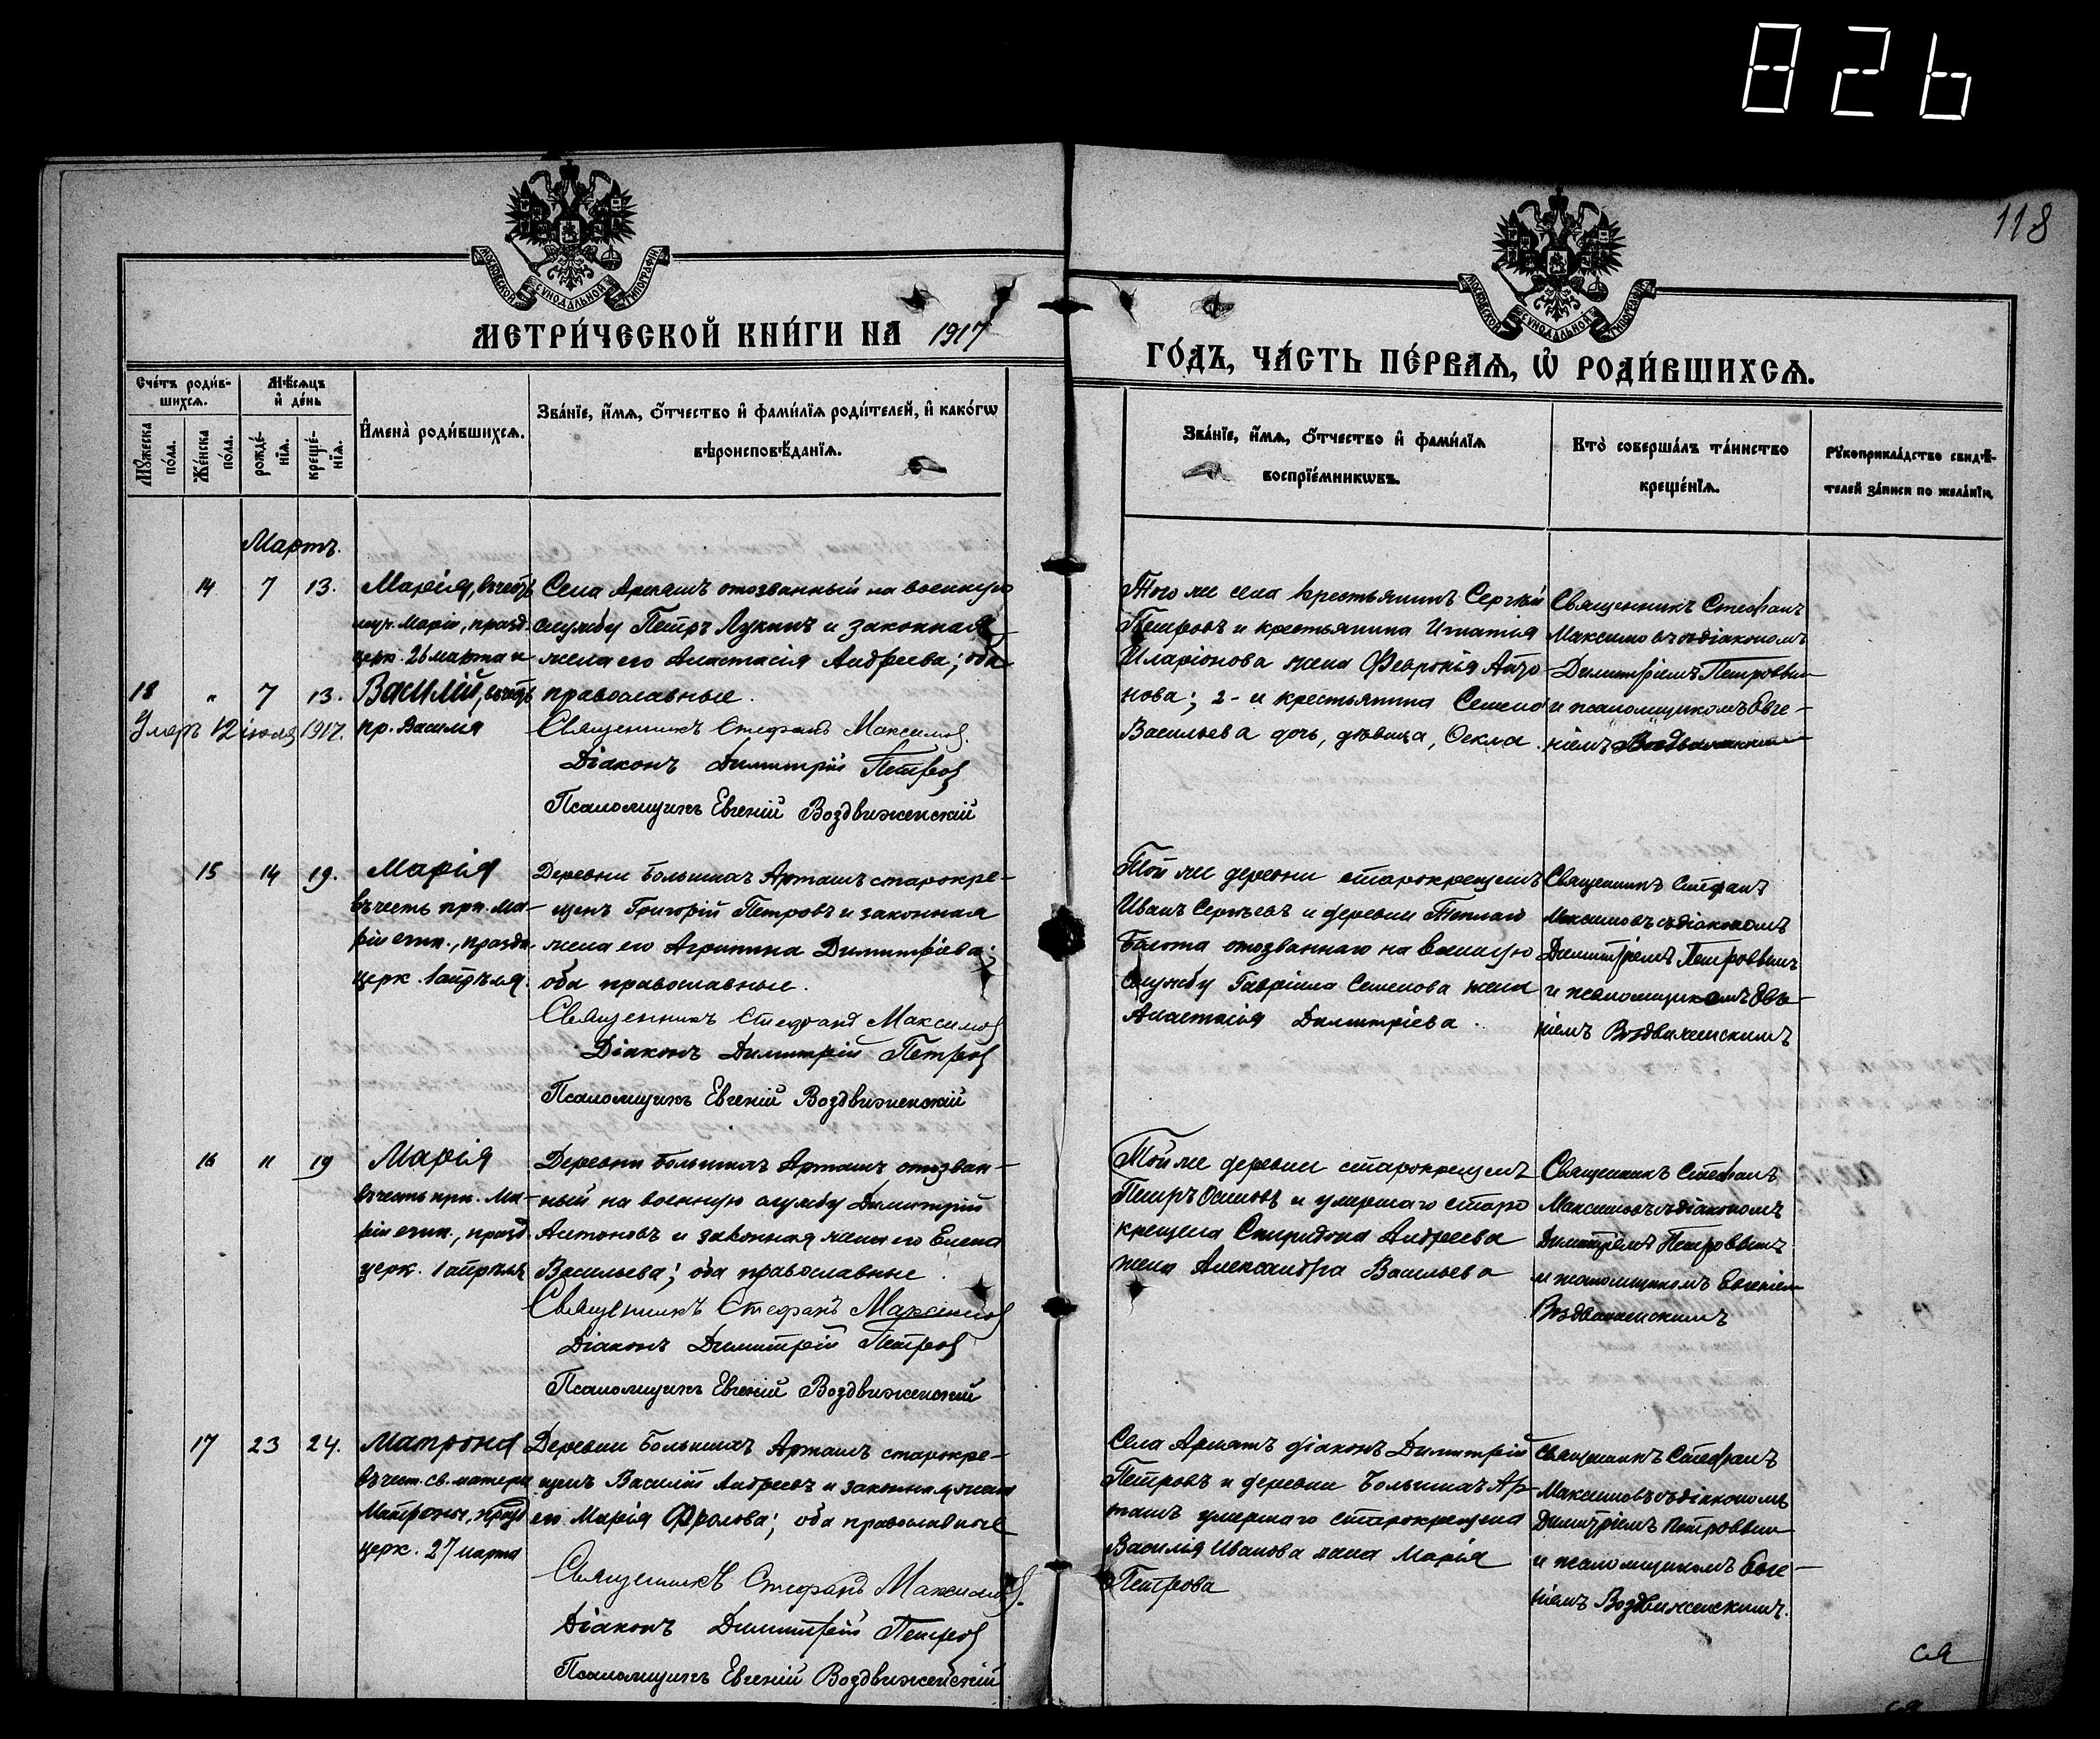 826
118
МОСКОВСКОЙ СѴНОДАЛЬНОЙ ТИПОГРАФІИ
МОСКОВСКОЙ СѴНОДАЛЬНОЙ ТИПОГРАФІИ
МЕТРИ́ЧЕСКОЙ КНИ́ГИ НА 1917
ГО́ДЪ, ЧА́СТЬ ПЕ́РВАѦ, Ѡ҆ РОДИ́ВШИХСѦ.
Сче́тъ роди́в-
шихсѧ.
Мѣ́сѧцъ
и҆ де́нь
Мꙋ́жеска
по́ла.
Же́нска
по́ла.
рожде́-
нїѧ.
креще́-
нїѧ.
И҆мена̀ роди́вшихсѧ.
Зва́нїе, и҆́мѧ, ѻ҆́тчество и҆ фами́лїѧ роди́телей, и҆ како́гѡ
вѣроисповѣ́данїѧ.
Зва́нїе, и҆́мѧ, ѻ҆́тчество и҆ фами́лїѧ
воспрїе́мникѡвъ.
Кто̀ соверша́лъ та́инство
креще́нїѧ.
Рꙋкоприкла́дство свидѣ́-
телей за́писи по жела́нїю.
Мартъ.
14 7 13.
Марія, въ честь
муч. Маріи, празд.
церк. 26 марта и
18 " 7 13. Василій, въ честь
Умеръ 12 іюля 1917. пр. Василія
Села Арняшъ отозванный на военную
службу Петръ Лукинъ и законная
жена его Анастасія Андреева; оба
православные.
Священникъ Стефанъ Максимов
Діаконъ Димитрій Петров
Псаломщикъ Евгеній Воздвиженскій
Того же села крестьянинъ Сергѣй
Петровъ и крестьянина Игнатія
Иларіонова жена Февронія Анто
нова; 2-и крестьянина Семена
Васильева дочь, дѣвица, Ѳекла.
Священникъ Стефанъ
Максимовъ съ діакономъ
Димитріемъ Петровым
и псаломщикомъ Евге-
ніемъ
15 14 19.
Марія
въ честь прп. Ма-
ріи егип., праздн.
церк. 1 апрѣля.
Деревни Большихъ Арташъ старокре-
щенъ Григорій Петровъ и законная
жена его Агрипина Димитріева;
оба православные.
Священникъ Стефанъ Максимов
Діаконъ Димитрій Петров
Псаломщикъ Евгеній Воздвиженскій
Той же деревни старокрещенъ
Иванъ Сергѣевъ и деревни Теплаго
Болота отозваннаго на военную
службу Гавріила Семенова жена
Анастасія Димитріева.
Священникъ Стефанъ
Максимовъ съ діакономъ
Димитріемъ Петровымъ
и псаломщикомъ Евге-
ніемъ Воздвиженскимъ
16 " 19
Марія
въ честь прп. Ма-
ріи егип., празд.
церк. 1 апрѣля
Деревни Большихъ Арташъ отозван-
ный на военную службу Димитрій
Антоновъ и законная жена его Елена
Васильева; оба православные.
Священникъ Стефанъ Максимов
Діаконъ Димитрій Петров
Псаломщикъ Евгеній Воздвиженскій
Той же деревни старокрещенъ
Петръ Осиповъ и умершаго старо
крещена Спиридона Андреева
жена Александра Васильева
Священникъ Стефанъ
Максимовъ съ діакономъ
Димитріемъ Петровымъ
и псаломщикомъ Евгеніем
Воздвиженскимъ
17 23 24.
Матрона
въ чест. св. матери
Матроны, празд
церк. 27 марта
Деревни Большихъ Арташъ старокре-
щенъ Василій Андреевъ и законная жена
его Марія Фролова; оба православные
Священникъ Стефанъ Максимов.
Діаконъ Димитрій Петров
Псаломщикъ Евгеній Воздвиженскій
Села Арняшъ діаконъ Димитрій
Петровъ и деревни Большихъ Ар
ташъ умершаго старокрещена
Василія Иванова жена Марія
Петрова
Священникъ Стефанъ
Максимовъ съ діакономъ
Димитріемъ Петровым
и псаломщикомъ Евге-
ніемъ Воздвиженскимъ.
ся